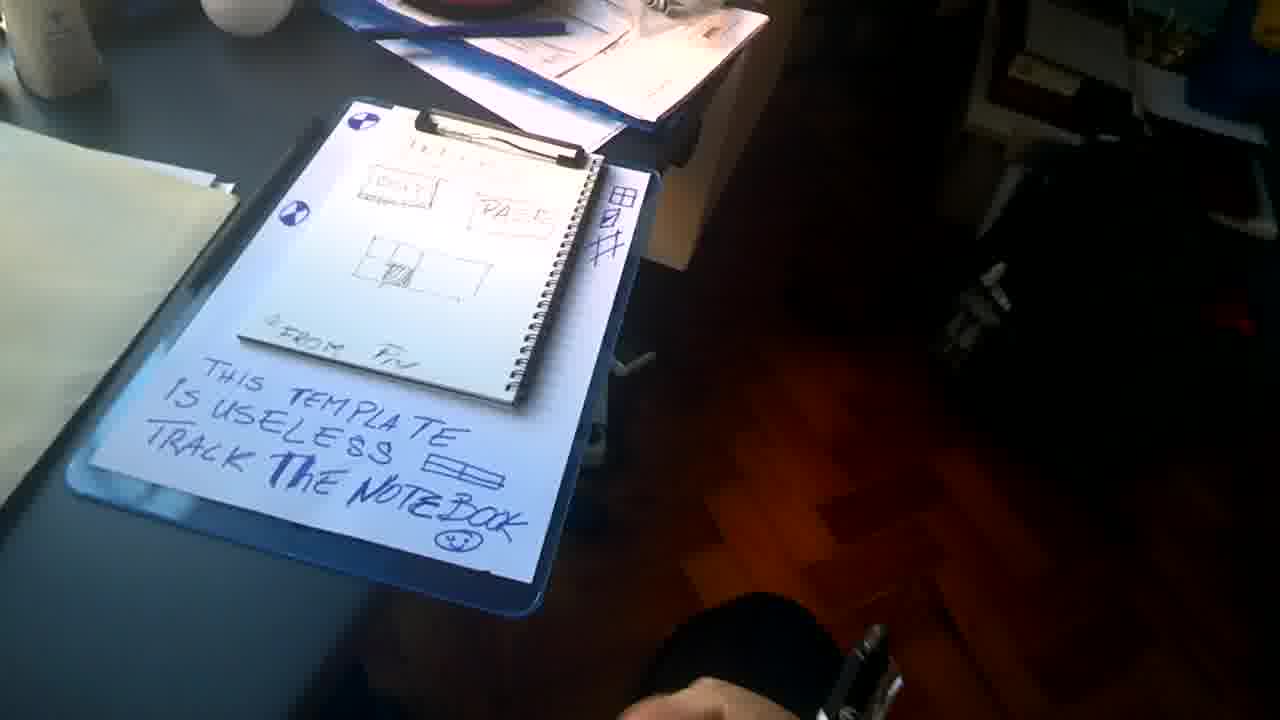 FROM
THIS TEMPLATE
IS USELESS
TRACK THE NOTEBOOK